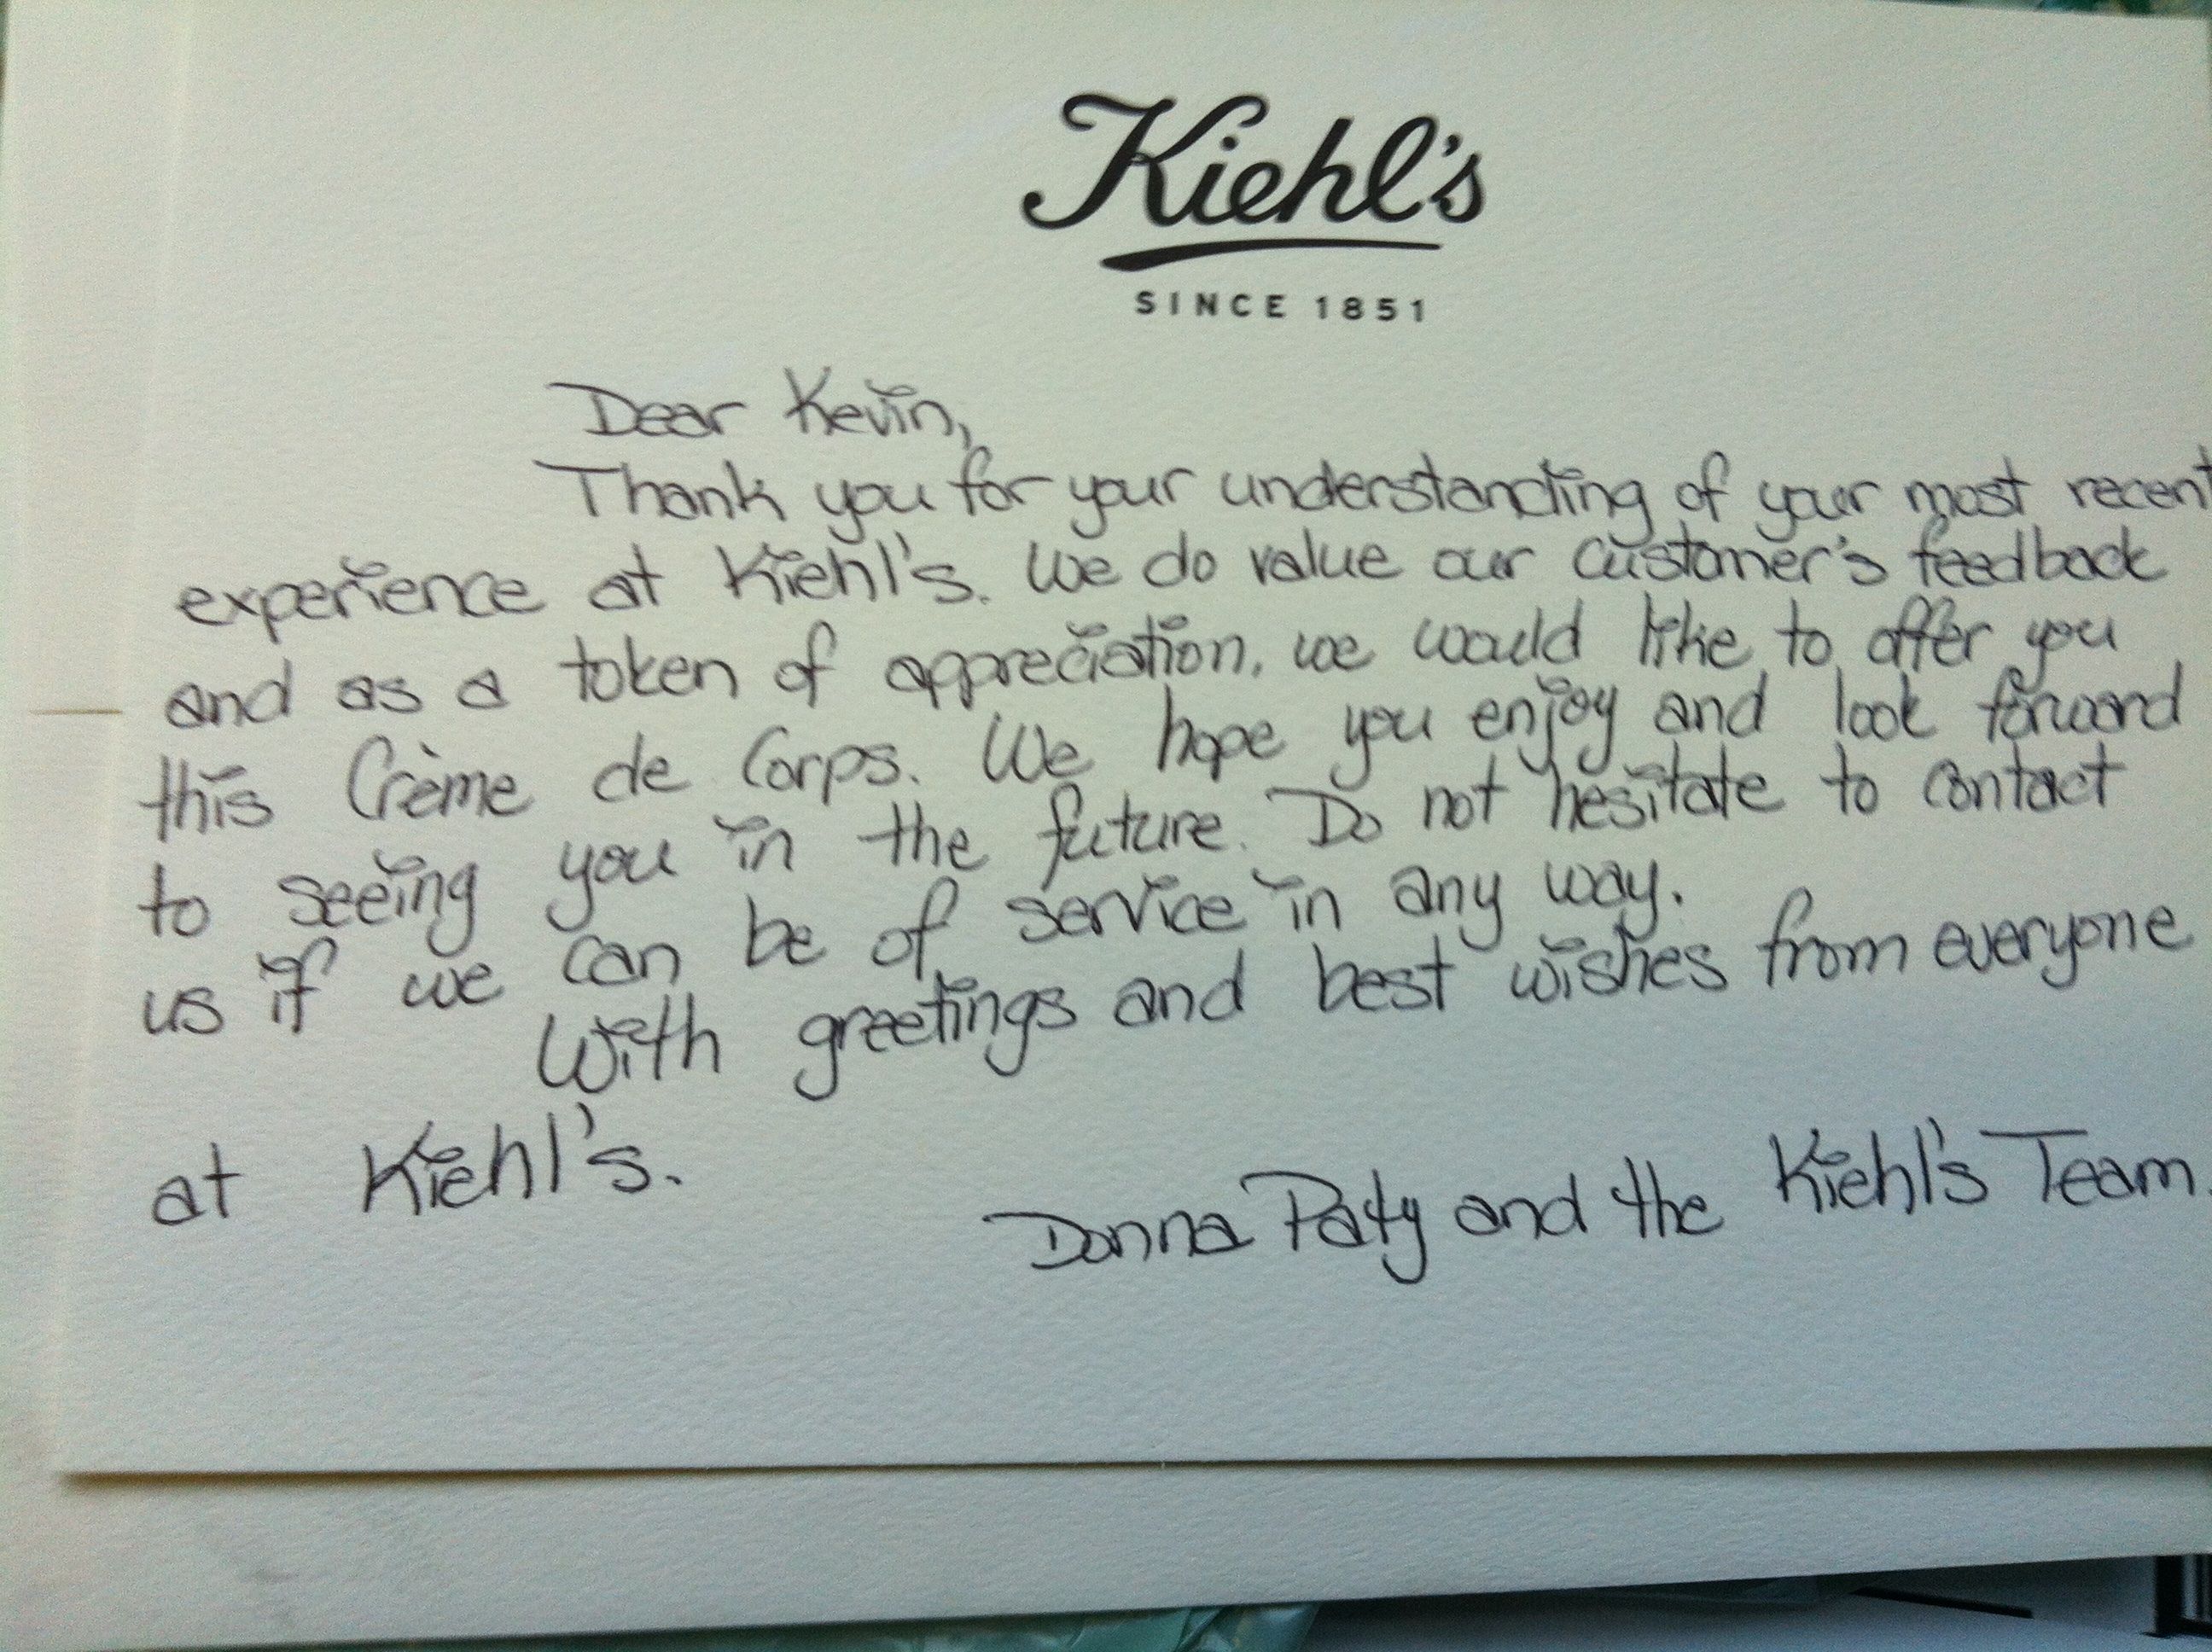 Kiehl's
SINCE 1851
Dear Kevin,
Thank you for your understanding of your most recent
experience at Kiehl's. We do value our customer's feedback
and as a token of appreciation, we would like to offer you
this Crème de Corps. We hope you enjoy and look forward
to seeing you in the future. Do not hesitate to contact
us if we can be of service in any way.
With greetings and best wishes from everyone
at Kiehl's.
Donna Paty and the Kiehl's Team.